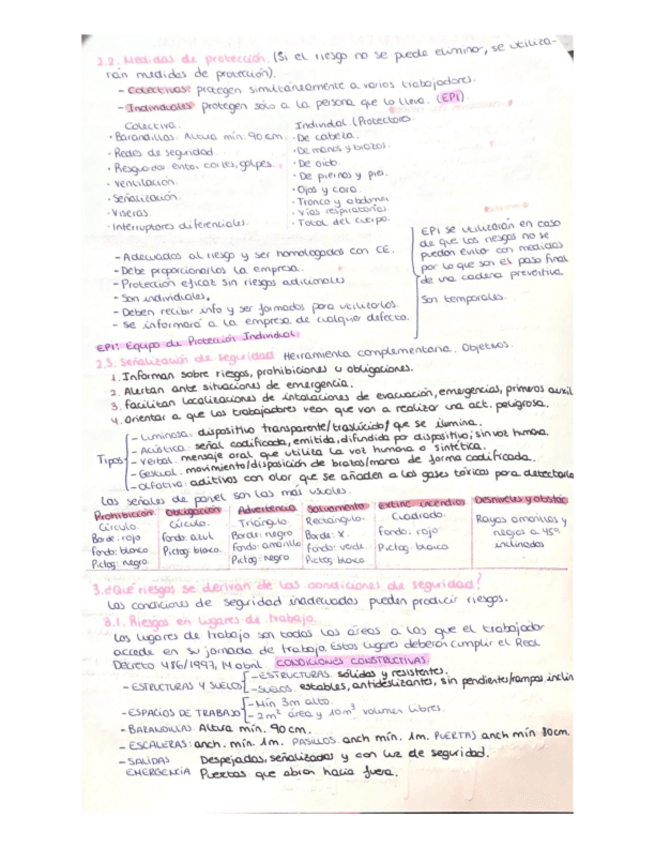 2.2. Medidas de protección. (Si el riesgo no se puede eliminar, se utiliza-
rán medidas de protección).
- Colectivas: protegen simultáneamente a varios trabajadores.
- Individuales: protegen sólo a la persona que lo lleva. (EPI)
Colectiva.
· Barandillas. Altura mín. 90cm.
· Redes de seguridad
· Resguardos entor. cortes, golpes.
· Ventilación.
· Señalización.
· Viseras.
· Interruptores diferenciales.
Individual (Protectores.
· De cabeza.
· De manos y brazos.
· De oído.
· De piernas y pies.
· Ojos y cara.
· Tronco y abdomen
· Vías respiratorias
· Total del cuerpo.
- Adecuados al riesgo y ser homologados con CE.
- Debe proporcionarlos la empresa.
- Protección eficaz sin riesgos adicionales
- Son individuales.
- Deben recibir info y ser formados para utilizarlos.
- Se informará a la empresa de cualquier defecto.
EPI se utilizarán en caso
de que los riesgos no se
puedan evitar con medidas
por lo que son el paso final
de una cadena preventiva
Son temporales.
EPI: Equipo de Protección Individual
2.3. Señalización de seguridad Herramienta complementaria. Objetivos.
1. Informan sobre riesgos, prohibiciones u obligaciones.
2. Alertan ante situaciones de emergencia.
3. Facilitan localizaciones de intalaciones de evacuación, emergencias, primeros auxil
4. Orientar a que los trabajadores vean que van a realizar una act. peligrosa.
Tipos
- Luminosa: dispositivo transparente/traslúcido/ que se ilumina.
- Acústica: señal codificada, emitida, difundida por dispositivo; sin voz humana.
- Verbal: mensaje oral que utiliza la voz humana o sintética.
- Gestual: movimiento/disposición de brazos/manos de forma codificada.
- Olfativa: aditivos con olor que se añaden a los gases tóxicos para detectarlo
Las señales de panel son las más usuales.
Prohibición
Círculo.
Borde: rojo
fondo: blanco
Pictog: negro.
Obligación
Círculo.
fondo: azul
Pictog: blanco.
Advertencia
Triángulo.
Borde: negro
fondo: amarillo
Pictog: negro
Salvamento
Rectángulo.
Borde: x.
fondo: verde
Pictog: blanco
Extinc. incendios
Cuadrado.
Fondo: rojo
Pictog: blanco
Desniveles y obstác
Rayas amarillas y
negras a 45º
inclinadas
3. ¿Qué riesgos se derivan de las condiciones de seguridad?
Las condiciones de seguridad inadecuadas pueden producir riesgos.
3.1. Riesgos en lugares de trabajo.
Los lugares de trabajo son todas las áreas a las que el trabajador
accede en su jornada de trabajo. Estos lugares deberán cumplir el Real
Decreto 486/1997, 14 abril. CONDICIONES CONSTRUCTIVAS.
- ESTRUCTURAS Y SUELOS
- ESTRUCTURAS. sólidas y resistentes.
- SUELOS. estables, antideslizantes, sin pendientes/rampas inclin
- ESPACIOS DE TRABAJO
- Mín 3m alto.
- 2m² área y 10m³ volumen libres.
- BARANDILLAS. Altura mín. 90cm.
- ESCALERAS: anch. mín. 1m. PASILLOS. anch mín. 1m. PUERTAS anch mín 80cm
- SALIDAS EMERGENCIA
Despejadas, señalizadas y con luz de seguridad.
Puertas que abran hacia fuera.